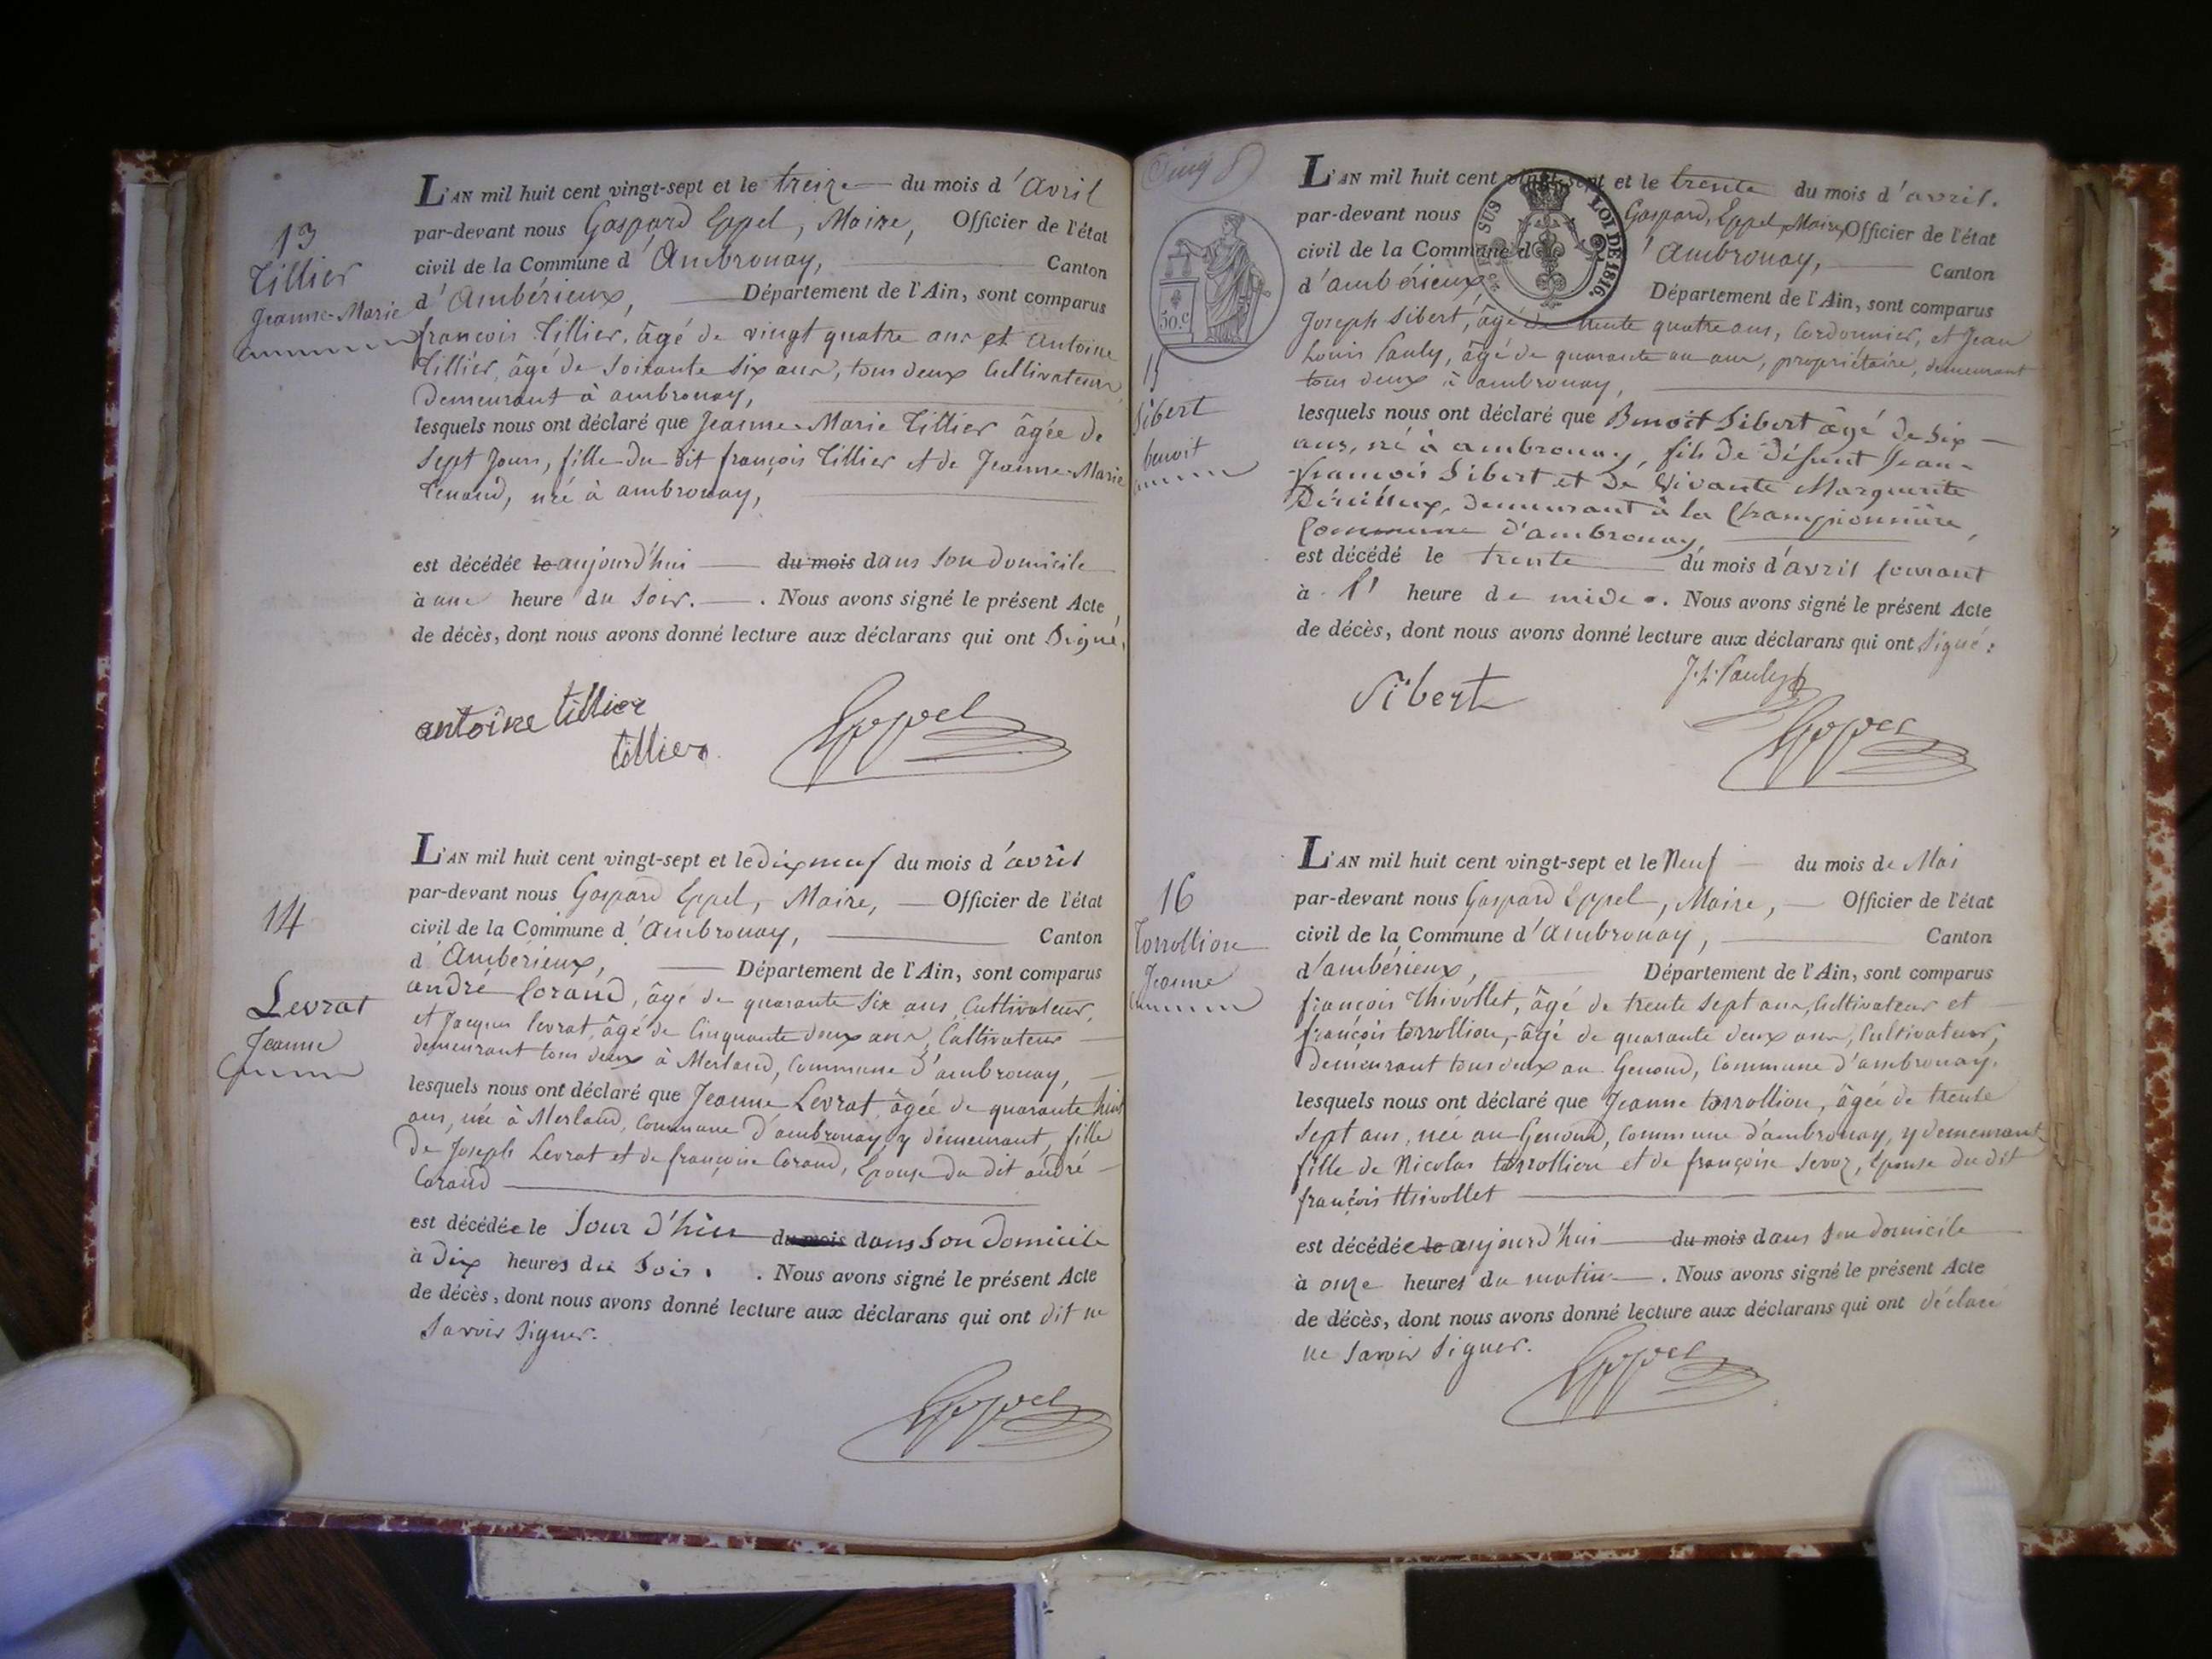 13
Tillier
Jeanne-Marie
L'AN mil huit cent vingt-sept et le treize du mois d'Avril
par-devant nous Gaspard Eppel, Maire, Officier de l'état
civil de la Commune d'Ambronay, Canton
d'Ambérieux, Département de l'Ain, sont comparus
françois Tillier, âgé de vingt quatre ans et Antoine
Tillier, âgé de soixante six ans, tous deux Cultivateurs
Demeurant à ambronay,
lesquels nous ont déclaré que Jeanne-Marie Tillier âgée de
Sept Jours, fille du dit françois Tillier et de Jeanne-Marie
Tenand, née à ambronay,
est décédée le aujourd'hui du mois dans Son domicile
à une heure du Soir. . Nous avons signé le présent Acte
de décès, dont nous avons donné lecture aux déclarans qui ont Signé.
antoine tillier
tillier
Eppel
14
Levrat
Jeanne
L'AN mil huit cent vingt-sept et le Dix neuf du mois d'avril
par-devant nous Gaspard Eppel, Maire, Officier de l'état
civil de la Commune d'Ambronay, Canton
d'Ambérieux, Département de l'Ain, sont comparus
andré Corand, âgé de quarante Six ans, Cultivateur,
et Jacques levrat, âgé de Cinquante deux ans, Cultivateur
demeurant tous deux à Merland, Commune d'ambronay,
lesquels nous ont déclaré que Jeanne Levrat, âgée de quarante huit
ans, née à Merland, Commune d'ambronay y demeurant, fille
de Joseph Levrat et de françoise Corand, Epouse du dit andré
Corand
est décédée le Jour d'hier du mois dans Son Domicile
à Dix heures du Soir. . Nous avons signé le présent Acte
de décès, dont nous avons donné lecture aux déclarans qui ont dit ne
Savoir Signer.
Eppel
50.C
SUS
LOI DE 1816.
15
Sibert
benoit
L'AN mil huit cent vingt-sept et le trente du mois d'avril.
par-devant nous Gaspard, Eppel, Maire, Officier de l'état
civil de la Commune d'Ambronay, Canton
d'ambérieux Département de l'Ain, sont comparus
Joseph Sibert, âgé de trente quatre ans, Cordonnier, et Jean
Louis Pauly, âgé de quarante un ans, propriétaire, demeurant
tous deux à ambronay,
lesquels nous ont déclaré que Benoit Sibert âgé de Six
ans, né à ambronay, fils de Défunt Jean-
françois Sibert et de Vivante Marguerite
demeurant à la Championnière,
Commune d'ambronay
est décédé le trente du mois d'avril courant
à l' heure de midi. Nous avons signé le présent Acte
de décès, dont nous avons donné lecture aux déclarans qui ont Signé:
Sibert
J.L. Pauly
Eppel
16
Torrollion
Jeanne
L'AN mil huit cent vingt-sept et le Neuf du mois de Mai
par-devant nous Gaspard Eppel, Maire, Officier de l'état
civil de la Commune d'Ambronay, Canton
d'ambérieux, Département de l'Ain, sont comparus
françois Thivollet, âgé de trente Sept ans, Cultivateur et
françois torrollion, âgé de quarante deux ans, Cultivateur,
demeurant tous deux au Genoud, Commune d'ambronay.
lesquels nous ont déclaré que Jeanne torrollion, âgée de trente
Sept ans, née au Genoud, Commune d'ambronay, y demeurant
fille de Nicolas torrollion et de françoise Sevoz, Epouse du dit
françois thivollet
est décédée le aujourd'hui du mois dans Son domicile
à onze heures du matin. Nous avons signé le présent Acte
de décès, dont nous avons donné lecture aux déclarans qui ont déclaré
ne Savoir Signer.
Eppel